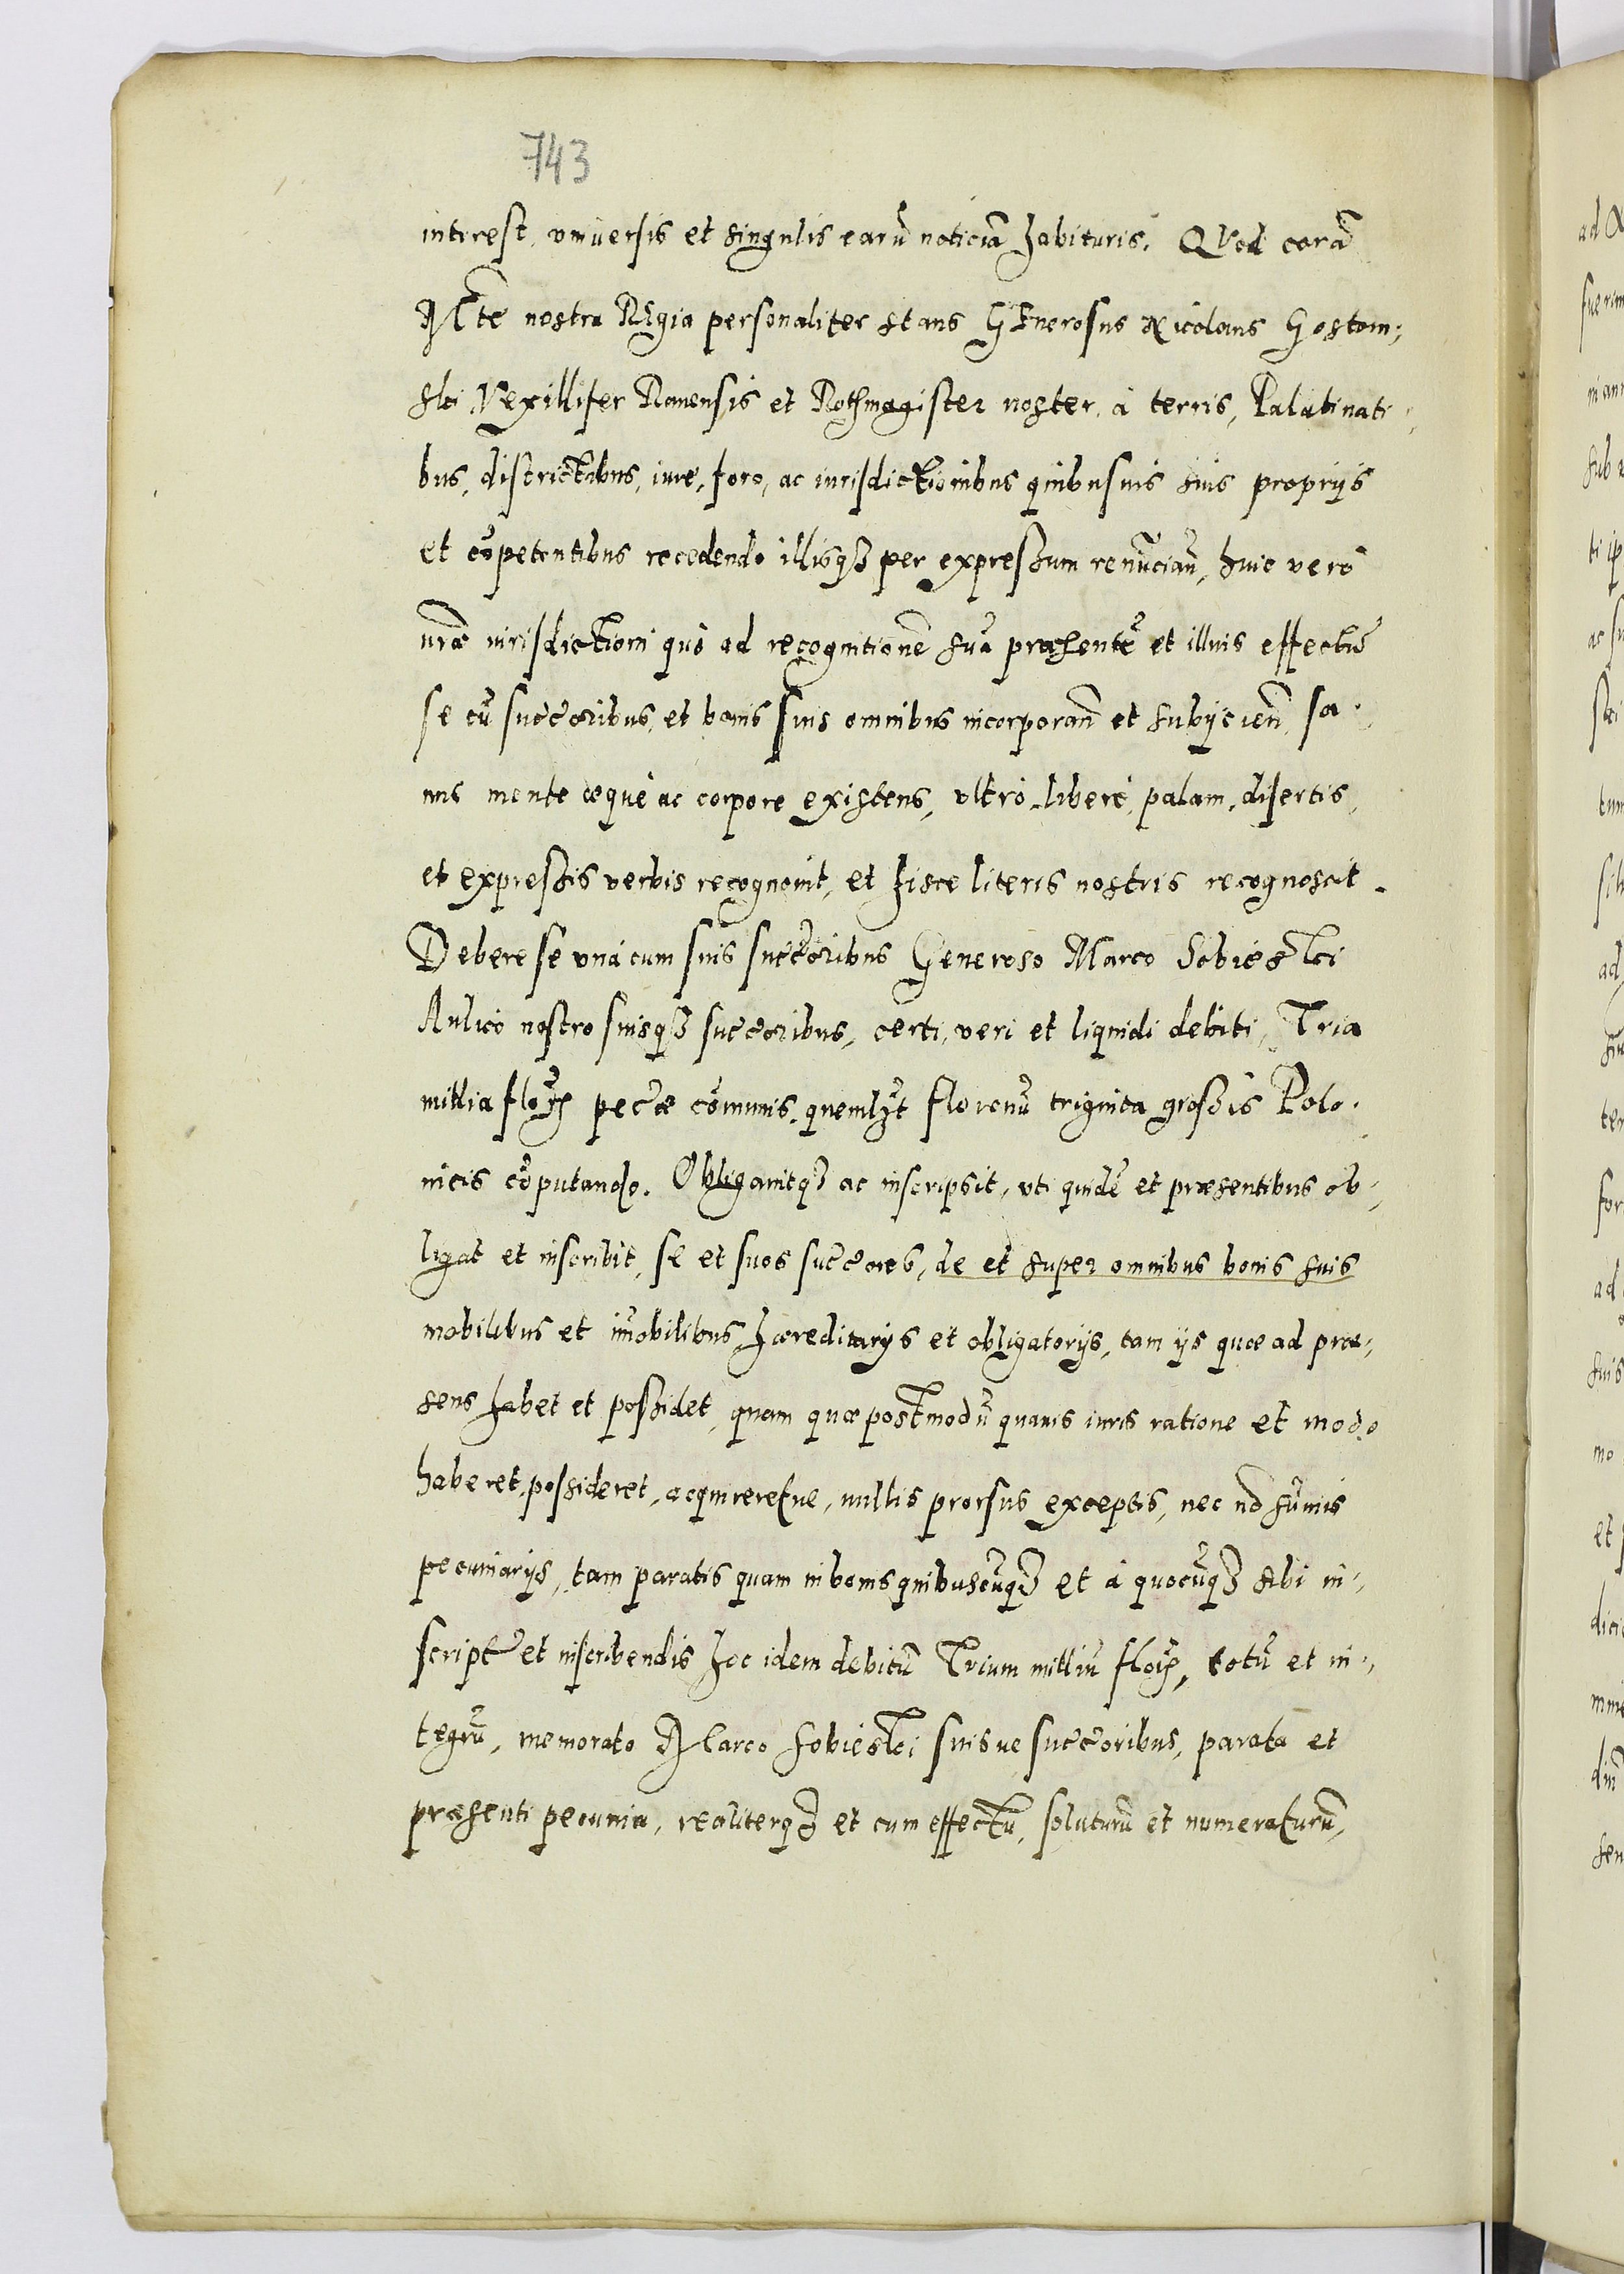 743
interest, vniuersis et singulis earũ noticiã habituris. Quod corã
Mte nostra Regia personaliter stans GEnerosus Nicolaus Gostom;
ski Vexillifer Rauensis et Rothmagister noster, à terris, Palatinati,
bus, districtibus, iure, foro, ac iurisdictionibus quibusuis suis proprijs
et cõpetentibus recedendo illisqȝ per expressum renũciañ, huic verò
nrãe iurisdictioni quò ad recognitionẽ suã præsentẽ et illius effectũ
se cũ succoribus, et bonis suis omnibus incorporañ et subijcień, sa.
nus mente æquè ac corpore existens, vltrò, liberè, palam, disertis,
et expressis verbis recognouit, et hisce literis nostris recognoscit.
Debere se vnà cum suis succoribus Generoso Marco Sobieski
Aulico nostro suisqȝ succoribus, certi, veri et liquidi debiti, Tria
millia floꝝ pecæ cõmunis, quemlȝt florenũ triginta grossis Polo.
nicis cõputando. Obligauitqȝ ac inscripsit, vti quidẽ et præsentibus ob,
ligat et inscribit, se et suos succores, de et super omnibus bonis suis
mobilibus et im̃obilibus, hæreditarijs et obligatorijs, tam ijs quæ ad præ,
sens habet et possidet, quam quæ postmodũ quauis iuris ratione et modo
haberet, possideret, acquireretue, nullis prorsus exceptis, nec nõ sũmis
pecuniarijs, tam paratis quam in bonis quibuscũqȝ et à quocũqȝ sibi in,
script̃ et inscribendis hoc idem debitũ Trium milliũ floꝝ, totũ et in,
tegrũ, memorato Marco Sobieski suisue succoribus, parata et
præsenti pecunia, realiterqȝ et cum effectu, soluturũ et numeraturũ,